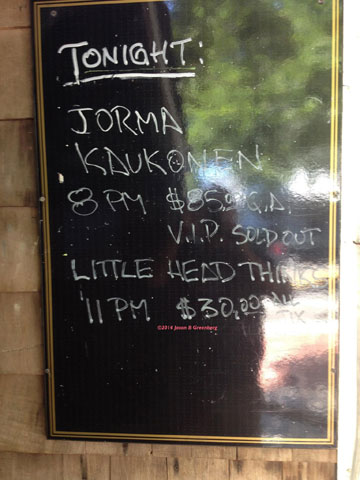 TONIGHT:
JORMA
KAUKONEN
8 PM $85.00 G.A.
V.I.P. SOLD OUT
LITTLE HEAD THINKS
11 PM $30.00
©2014 Jason B Greenberg